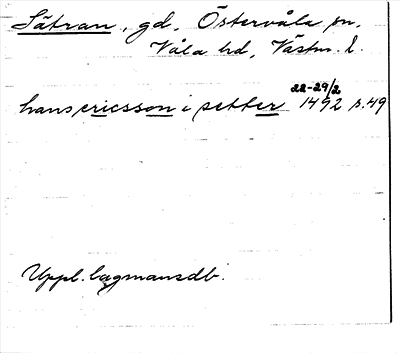 Sätran, gd, Östervåla sn,
Våla hd, Västm. l.
22-29/2
hans ericsson i setter 1492 s.49
Uppl. lagmansdb.